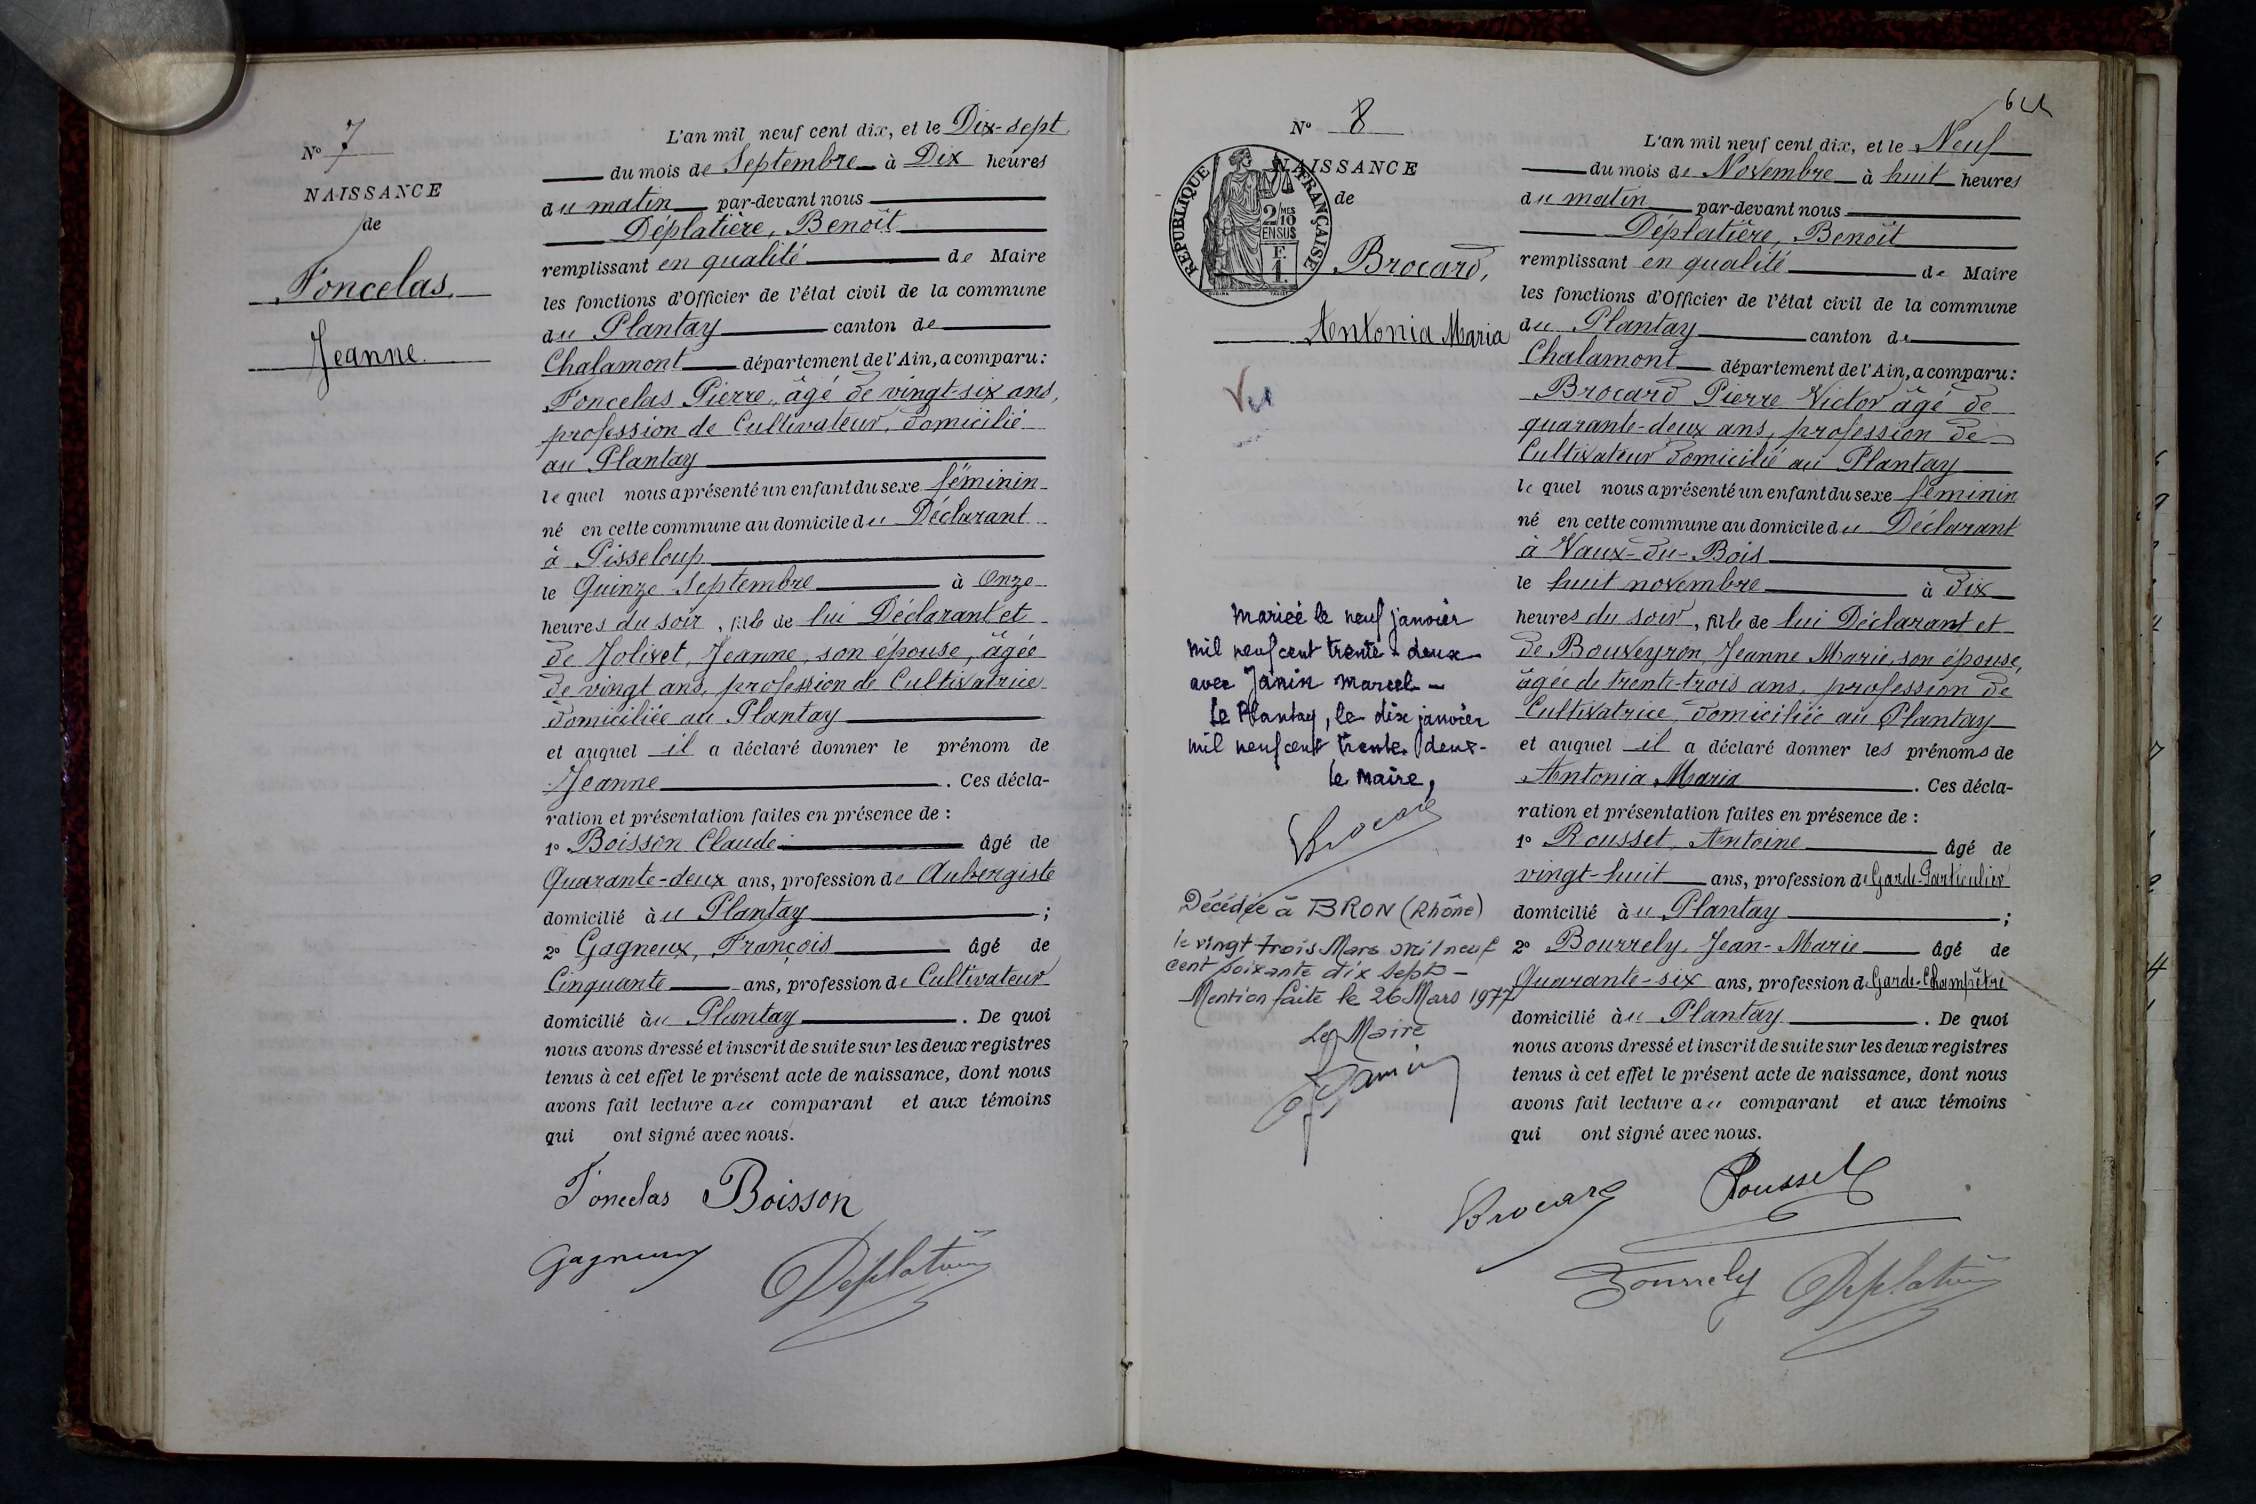 N° 7
NAISSANCE
de
Foncelas
Jeanne
L'an mil neuf cent dix, et le Dix-sept
du mois de Septembre à Dix heures
du matin par-devant nous
Déplatière, Benoît
remplissant en qualité de Maire
les fonctions d'Officier de l'état civil de la commune
du Plantay canton de
Chalamont département de l'Ain, a comparu:
Foncelas Pierre, âgé de vingt-six ans,
profession de Cultivateur, domicilié
au Plantay
lequel nous a présenté un enfant du sexe féminin
né en cette commune au domicile du Déclarant
à Pisseloup
le Quinze Septembre à Onze
heures du soir, fille de lui Déclarant et
de Jolivet, Jeanne, son épouse, âgée
de vingt ans, profession de Cultivatrice
domiciliée au Plantay
et auquel il a déclaré donner le prénom de
Jeanne. Ces décla-
ration et présentation faites en présence de :
1° Boisson Claude âgé de
Quarante-deux ans, profession de Aubergiste
domicilié au Plantay ;
2° Gagneux, François âgé de
Cinquante ans, profession de Cultivateur
domicilié au Plantay. De quoi
nous avons dressé et inscrit de suite sur les deux registres
tenus à cet effet le présent acte de naissance, dont nous
avons fait lecture au comparant et aux témoins
qui ont signé avec nous.
Foncelas Boisson
Gagneux Déplatière
64
N° 8
NAISSANCE
de
REPUBLIQUE FRANÇAISE
2/10 MES
EN SUS
F.
1
Brocard,
Antonia Maria
Vu
mariée le neuf janvier
mil neuf cent trente-deux
avec Janin Marcel -
Le Plantay, le dix janvier
mil neuf cent trente-deux-
le maire,
Brocard
Décédée à BRON (Rhône)
le vingt trois Mars mil neuf
cent soixante dix sept -
Mention faite le 26 Mars 1977
Le Maire
Janin
L'an mil neuf cent dix, et le Neuf
du mois de Novembre à huit heures
du matin par-devant nous
Déplatière, Benoît
remplissant en qualité de Maire
les fonctions d'Officier de l'état civil de la commune
du Plantay canton de
Chalamont département de l'Ain, a comparu:
Brocard Pierre Victor âgé de
quarante-deux ans, profession de
Cultivateur domicilié au Plantay
lequel nous a présenté un enfant du sexe féminin
né en cette commune au domicile du Déclarant
à Vaux-du-Bois
le huit novembre à dix
heures du soir, fille de lui Déclarant et
de Bouveyron, Jeanne Marie, son épouse,
âgée de trente-trois ans, profession de
Cultivatrice domiciliée au Plantay
et auquel il a déclaré donner les prénoms de
Antonia Maria. Ces décla-
ration et présentation faites en présence de :
1° Rousset, Antoine âgé de
vingt-huit ans, profession de Garde-Particulier
domicilié au Plantay ;
2° Bourrely, Jean-Marie âgé de
Quarante-six ans, profession de Garde-Champêtre
domicilié au Plantay. De quoi
nous avons dressé et inscrit de suite sur les deux registres
tenus à cet effet le présent acte de naissance, dont nous
avons fait lecture au comparant et aux témoins
qui ont signé avec nous.
Brocard Rousset
Bourrely Déplatière